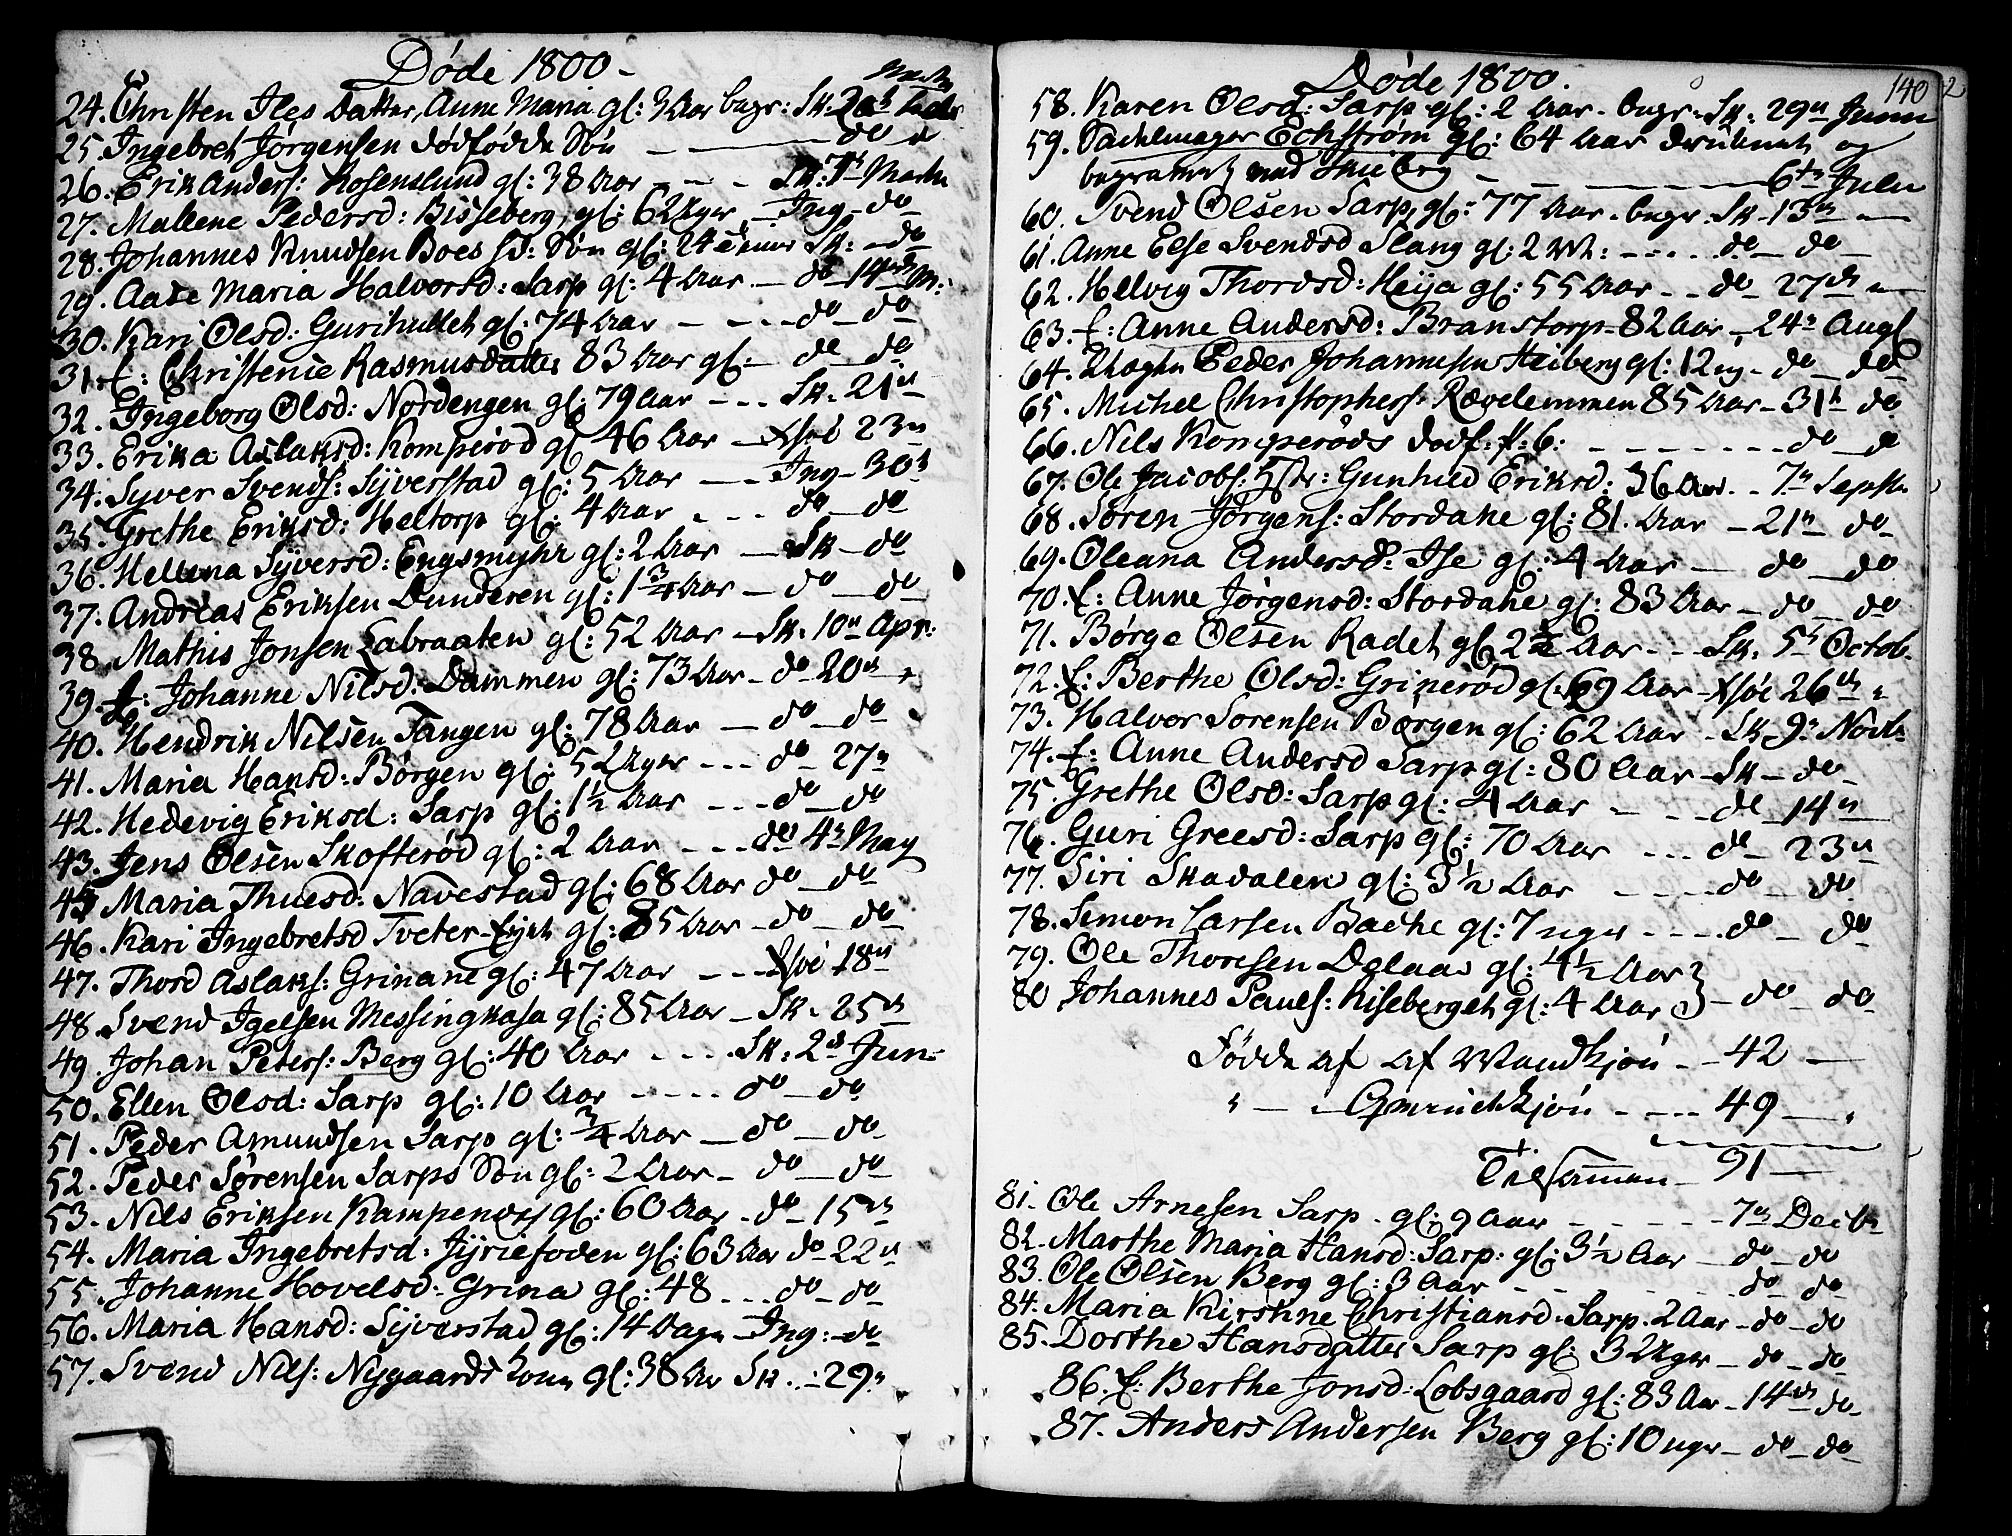 Døde 1800 -
24. Christen Ises Datter, Anne Maria gl: 3 Aar begr: Sk. 2
25. Ingebret Jørgensen dødfødde Søn — do
26. Erik Anders: Rosenslund gl: 38 Aar - - - Sk: Martii
27. Mallene Pedersd: Bisseberg, gl: 6 Uger - Ing - do
28. Johannes Knudsen Boes Søn gl: 24 Timer Sk: - do
29. Aase Maria Halvorsd: Sarp gl: 4 Aar - do 14 M:
30. Kari Olsd: Gurihullet gl: 74 Aar - - - do - do
31. f: Christenie Rasmusdatter 83 Aar gl - do - do
32. Ingeborg Olsd: Nordengen gl: 79 Aar - - - Sk. 21
33. Erika Aslaksd: Komperød gl 46 Aar - 23
34. Syver Svends: Syverstad gl: 5 Aar - - Ing - 30
35. Grethe Eriksd: Heltorp gl: 4 Aar - - - do - do
36. Hellena Syversd: Engsmyhr gl: 2 Aar - Sk - do
37. Andreas Eriksen Dunderen gl: 1 3/4 Aar - do - do
38 Mathis Jonsen Labraaten gl: 52 Aar - Sk. 10 Apr:
39. f: Johanne Nilsd: Dammen gl: 73 Aar - do 20
40. Hendrik Nilsen Tangen gl: 78 Aar - do - do
41. Maria Hansd: Børgen gl: 5 Uger - - - do - 27
42. Hedevig Eriksd: Sarp gl: 1½ Aar - - - do - do
43. Jens Olsen Skofterød gl: 2 Aar - - - do 4 May
45 Maria Thuesd: Navestad gl: 68 Aar do - do
46. Kari Ingebretsd Tveter gl: 85 Aar - do - do
47. Thord Aslaks: Grinane gl: 47 Aar - - - 18
48 Svend Igelsen Messingkasa gl: 85 Aar - Sk. 25
49. Johan Peters: Berg gl: 40 Aar - - - - Sk: 2 Jun-
50. Ellen Olsd: Sarp gl: 10 Aar - - - - do - do
51. Peder Amundsen Sarp gl: 3/4 Aar - do - do
52. Peder Sørensen Sarps Søn gl: 2 Aar - do - do
53. Nils Eriksen gl: 60 Aar - do - 15
54. Maria Ingebretsd: gl: 63 Aar do - 22
55. Johanne Hovelsd: Grina gl: 48 - - - do - do
56. Maria Hansd: Syverstad gl: 14 Dage - Ing: - do
57. Svend Nils: Nygaards gl: 38 Aar Sk. - 29
Døde 1800.
140
58. Karen Olsd: Sarp gl: 2 Aar - begr - Sk. 29 Junii
59. Sadelmager Echstrøm gl: 64 Aar druknet og
begravet ved Skieberg - - 6 Julii
60. Svend Olsen Sarp, gl: 77 Aar - begr. Sk - 13 -
61. Anne Else Svendsd Slang gl: 2 - - - - do - do -
62. Helvig Thordsd: Heija gl: 55 Aar - - do - 27 -
63. f: Anne Andersd: Branstorp - 82 Aar - 24 Aug
64. Peder Johannesen Heiberg gl: 12 ug - do - do
65. Michel Christophers: Rævelemmen 85 Aar - 31 do
66. Nils Komperøds dødf: - - - - - do - do
67. Ole Jacobs: Gunhild Eriksd: 36 Aar - - 7 Septb
68. Søren Jørgens: Stordane gl: 81. Aar - 21 do -
69. Oleana Andersd: Ise gl: 4 Aar - do - do
70. f: Anne Jørgensd: Stordane gl: 83 Aar - do - do
71. Børge Olsen Radet gl 2½ Aar - - - Sk. 5 Octob.
72. f: Berthe Olsd: Grinerød gl: 69 Aar - 26
73. Halvor Sørensen Børgen gl: 62 Aar - Sk 9 Novb
74. f: Anne Andersd Sarp gl: 80 Aar - Sk - do -
75 Grethe Olsd: Sarp gl: 4 Aar - - - do 14
76. Guri Greesd: Sarp gl: 70 Aar - - - do - 23
77. Siri Skadalen gl: 3½ Aar - - - - do - do
78. Simon Larsen Bache gl: 7 uger - - - do - do
79. Ole Thoresen gl: 4½ Aar }
80 Johannes Pauls: Kiseberget gl: 4 Aar } - do - do
Fødde af af Mandkjøn - - 42 —
" — - Qvindekjøn - - - - 49 —
Tilsammen - 91 —
81. Ole Arnesen Sarp. gl: 9 Aar - - - - - 7 Decb
82. Marthe Maria Hansd: Sarp: gl: 3½ Aar - do - do
83. Ole Olsen Berg gl: 3 Aar - - - - do - do
84. Maria Kirstine Christiansd. Sarp. 2 Aar - do - do
85. Dorthe Hansdatter Sarp gl: 3 Uger - do - do
86. f: Berthe Jonsd: Lobsgaard gl: 83 Aar - 14 do -
87. Anders Andersen Berg gl: 10 uger - do - do